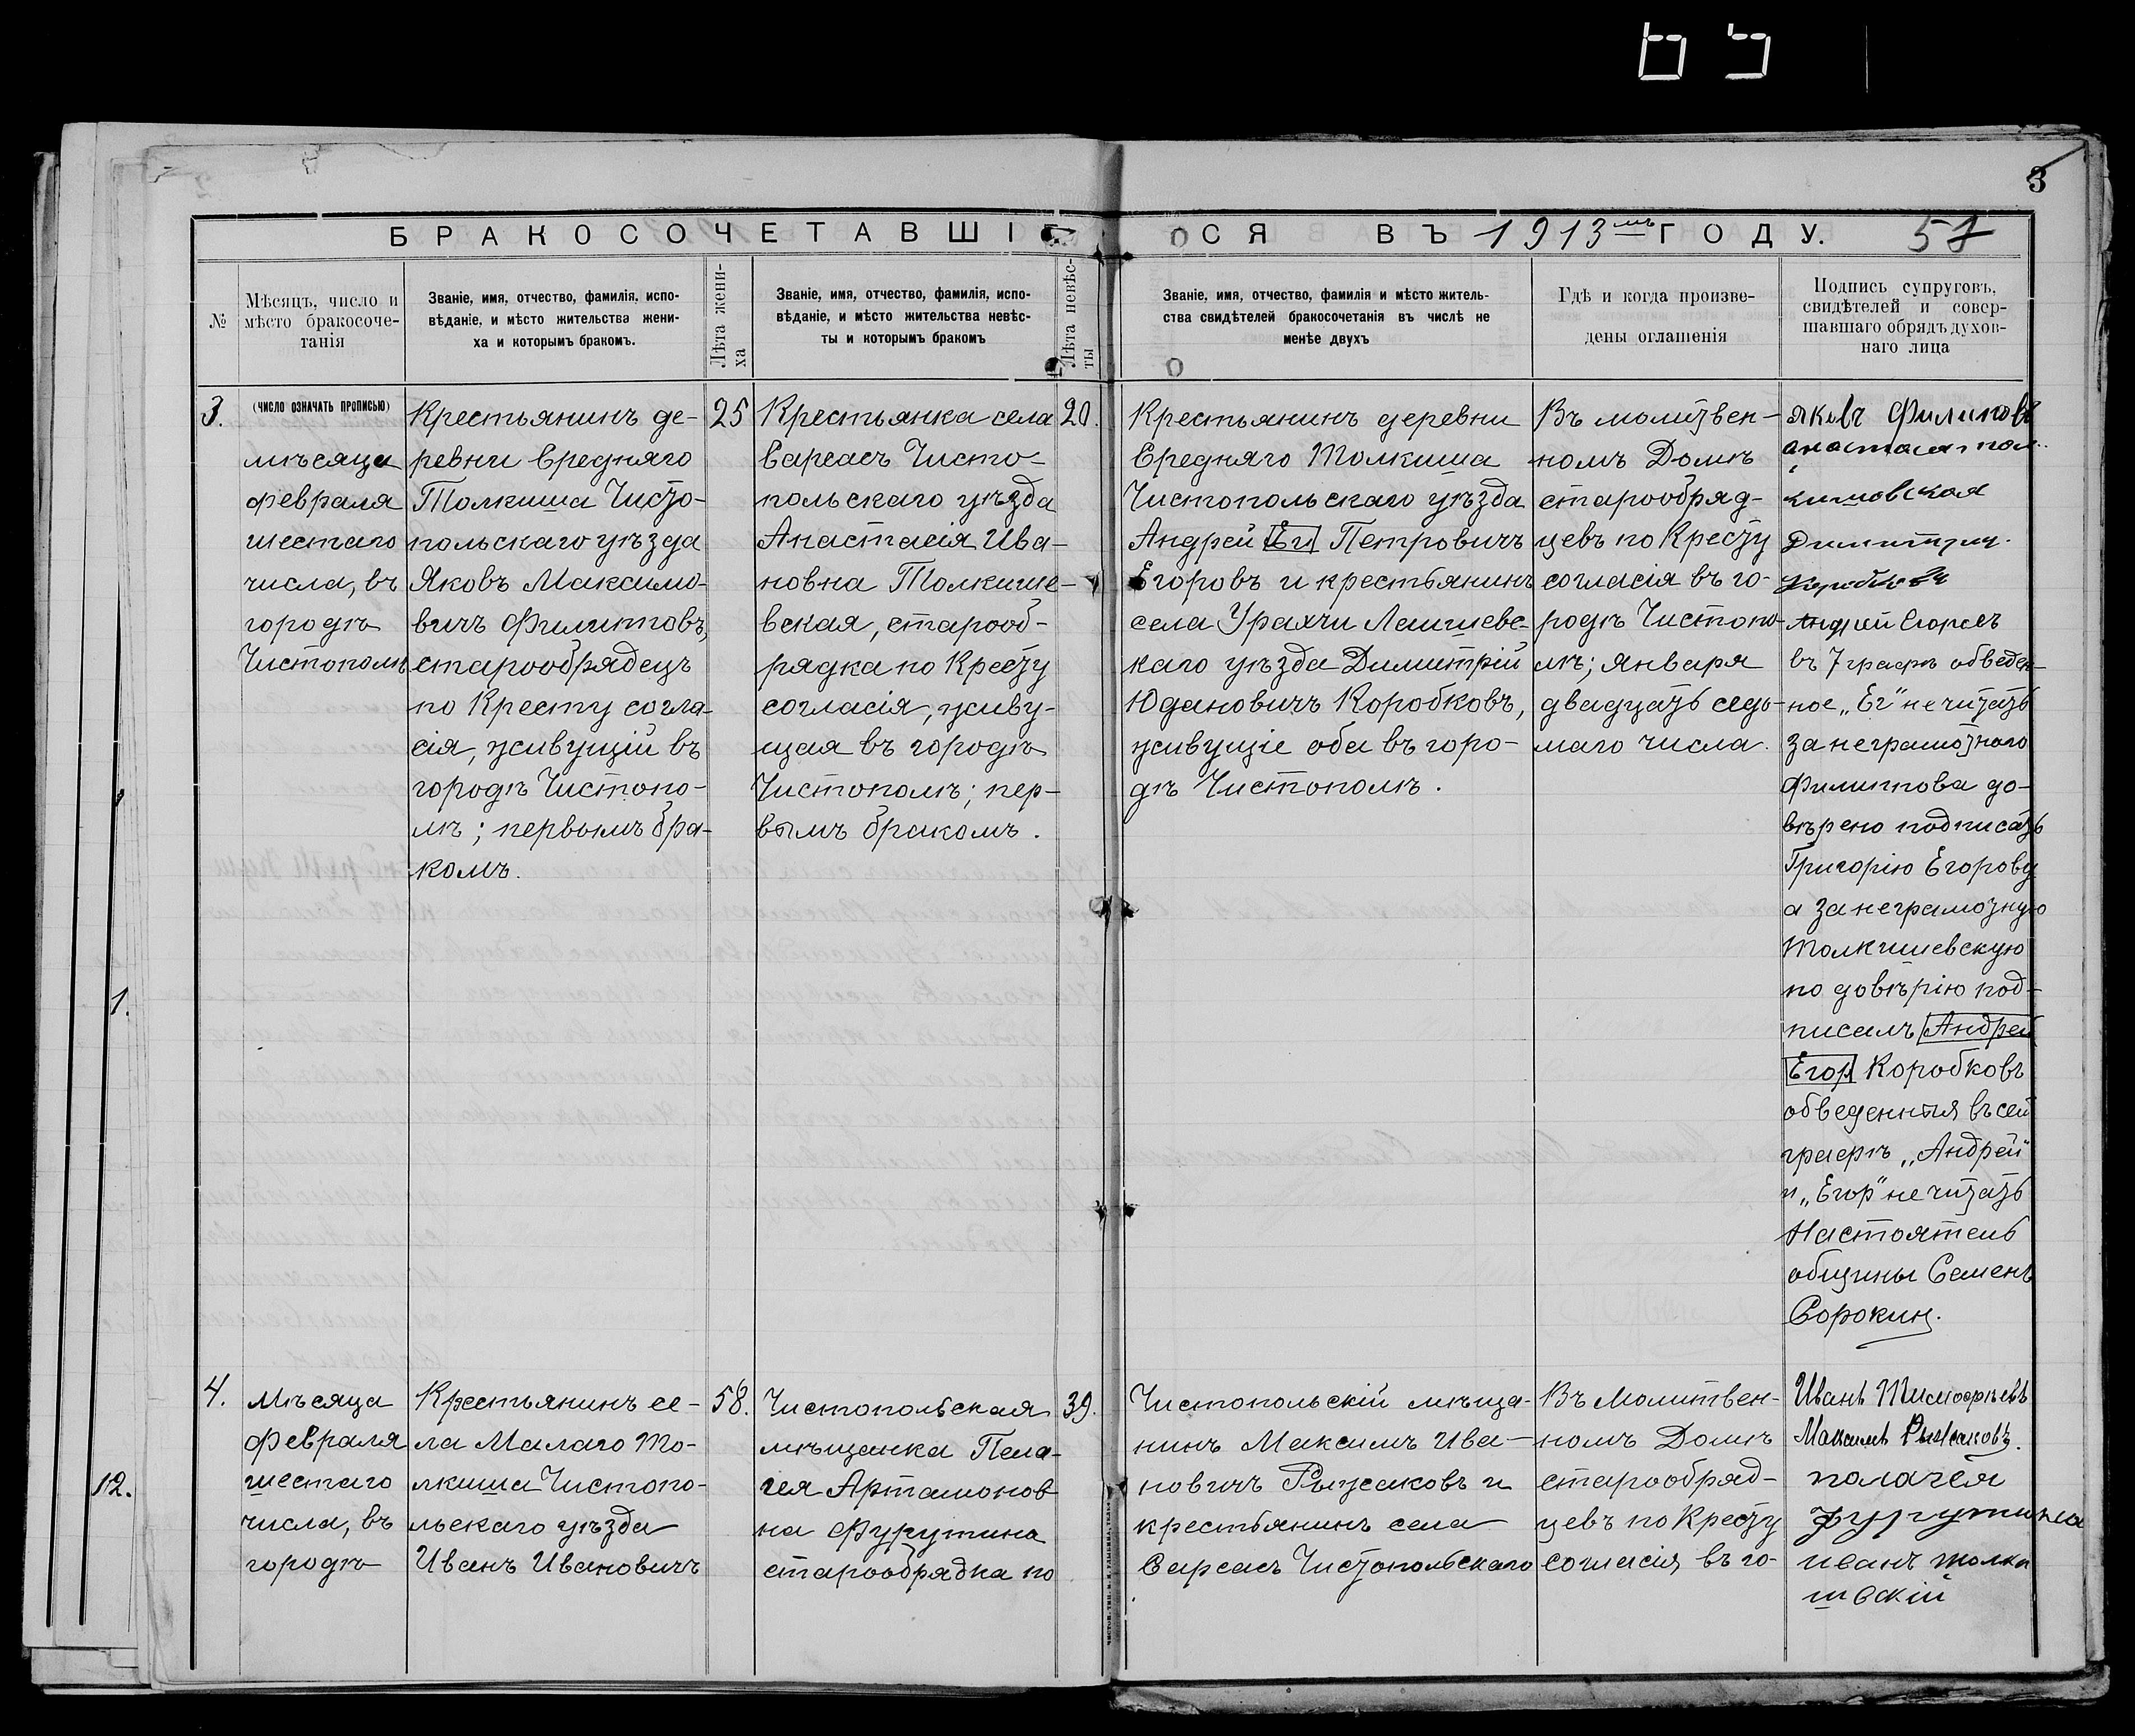 3
БРАКОСОЧЕТАВШIЕСЯ ВЪ 1913мъ ГОДУ. 57
№
Мѣсяцъ, число и
мѣсто бракосоче-
танія
Званіе, имя, отчество, фамилія, испо-
вѣданіе, и мѣсто жительства жени-
ха и которымъ бракомъ.
Лѣта жени-
ха
Званіе, имя, отчество, фамилія, испо-
вѣданіе, и мѣсто жительства невѣс-
ты и которымъ бракомъ
Лѣта невѣс-
ты
Званіе, имя, отчество, фамилія и мѣсто житель-
ства свидѣтелей бракосочетанія въ числѣ не
менѣе двухъ
Гдѣ и когда произве-
дены оглашенія
Подпись супруговъ,
свидѣтелей и совер-
шавшаго обрядъ духов-
наго лица
3.
(число означать прописью)
мѣсяца
февраля
шестаго
числа, въ
городѣ
Чистополѣ
Крестьянинъ де-
ревни Средняго
Толкиша Чисто-
польскаго уѣзда
Яковъ Максимо-
вичъ Филипповъ,
старообрядецъ
по Кресту согла-
сія, живущій въ
городѣ Чистопо-
лѣ; первымъ бра-
комъ.
25
Крестьянка села
Сарсасъ Чисто-
польскаго уѣзда
Анастасія Ива-
новна Толкише-
вская, старооб-
рядка по Кресту
согласія, живу-
щая въ городѣ
Чистополѣ; пер-
вымъ бракомъ.
20.
Крестьянинъ деревни
Средняго Толкиша
Чистопольскаго уѣзда
Андрей Ег Петровичъ
Егоровъ и крестьянинъ
села Урахчи Лаишевс-
каго уѣзда Димитрій
Юдановичъ Коробковъ,
живущіе оба въ горо-
дѣ Чистополѣ.
Въ молитвен-
номъ Домѣ
старообряд-
цевъ по Кресту
согласія въ го-
родѣ Чистопо-
лѣ; Января
двадцать седь-
маго числа.
Яковъ Филиповъ
анастасия тол-
кишовская
Димитрий
Коробковъ
Андрей Егоровъ
въ 7 графѣ обведен-
ное „Ег" не читать
За неграмотнаго
Филиппова до-
вѣрено подписать
Григорію Егорову
а за неграмотную
Толкишевскую
по довѣрію под-
писалъ Андрей
Егор Коробковъ
обведенныя въ сей
графѣ „Андрей"
и „Егор" не читать
Настоятель
общины Семенъ
Сорокин.
4.
Мѣсяца
Февраля
шестаго
числа, въ
городѣ
Крестьянинъ се-
ла Малаго То-
лкиша Чистопо-
льскаго уѣзда
Иванъ Ивановичъ
58.
Чистопольская
мѣщанка Пела-
гея Артамонов
на Фургутина
старообрядка по
39.
Чистопольскій мѣща-
нинъ Максимъ Ива-
новичъ Рыжаковъ и
крестьянинъ села
Сарсасъ Чистопольскаго
Въ Молитвен-
номъ Домѣ
старообряд-
цевъ по Кресту
согласія, въ го-
Иванъ Тимофѣевъ
Максимъ Рыжаковъ.
полагея
фургутина
иванъ толки
швскій
1.
12.